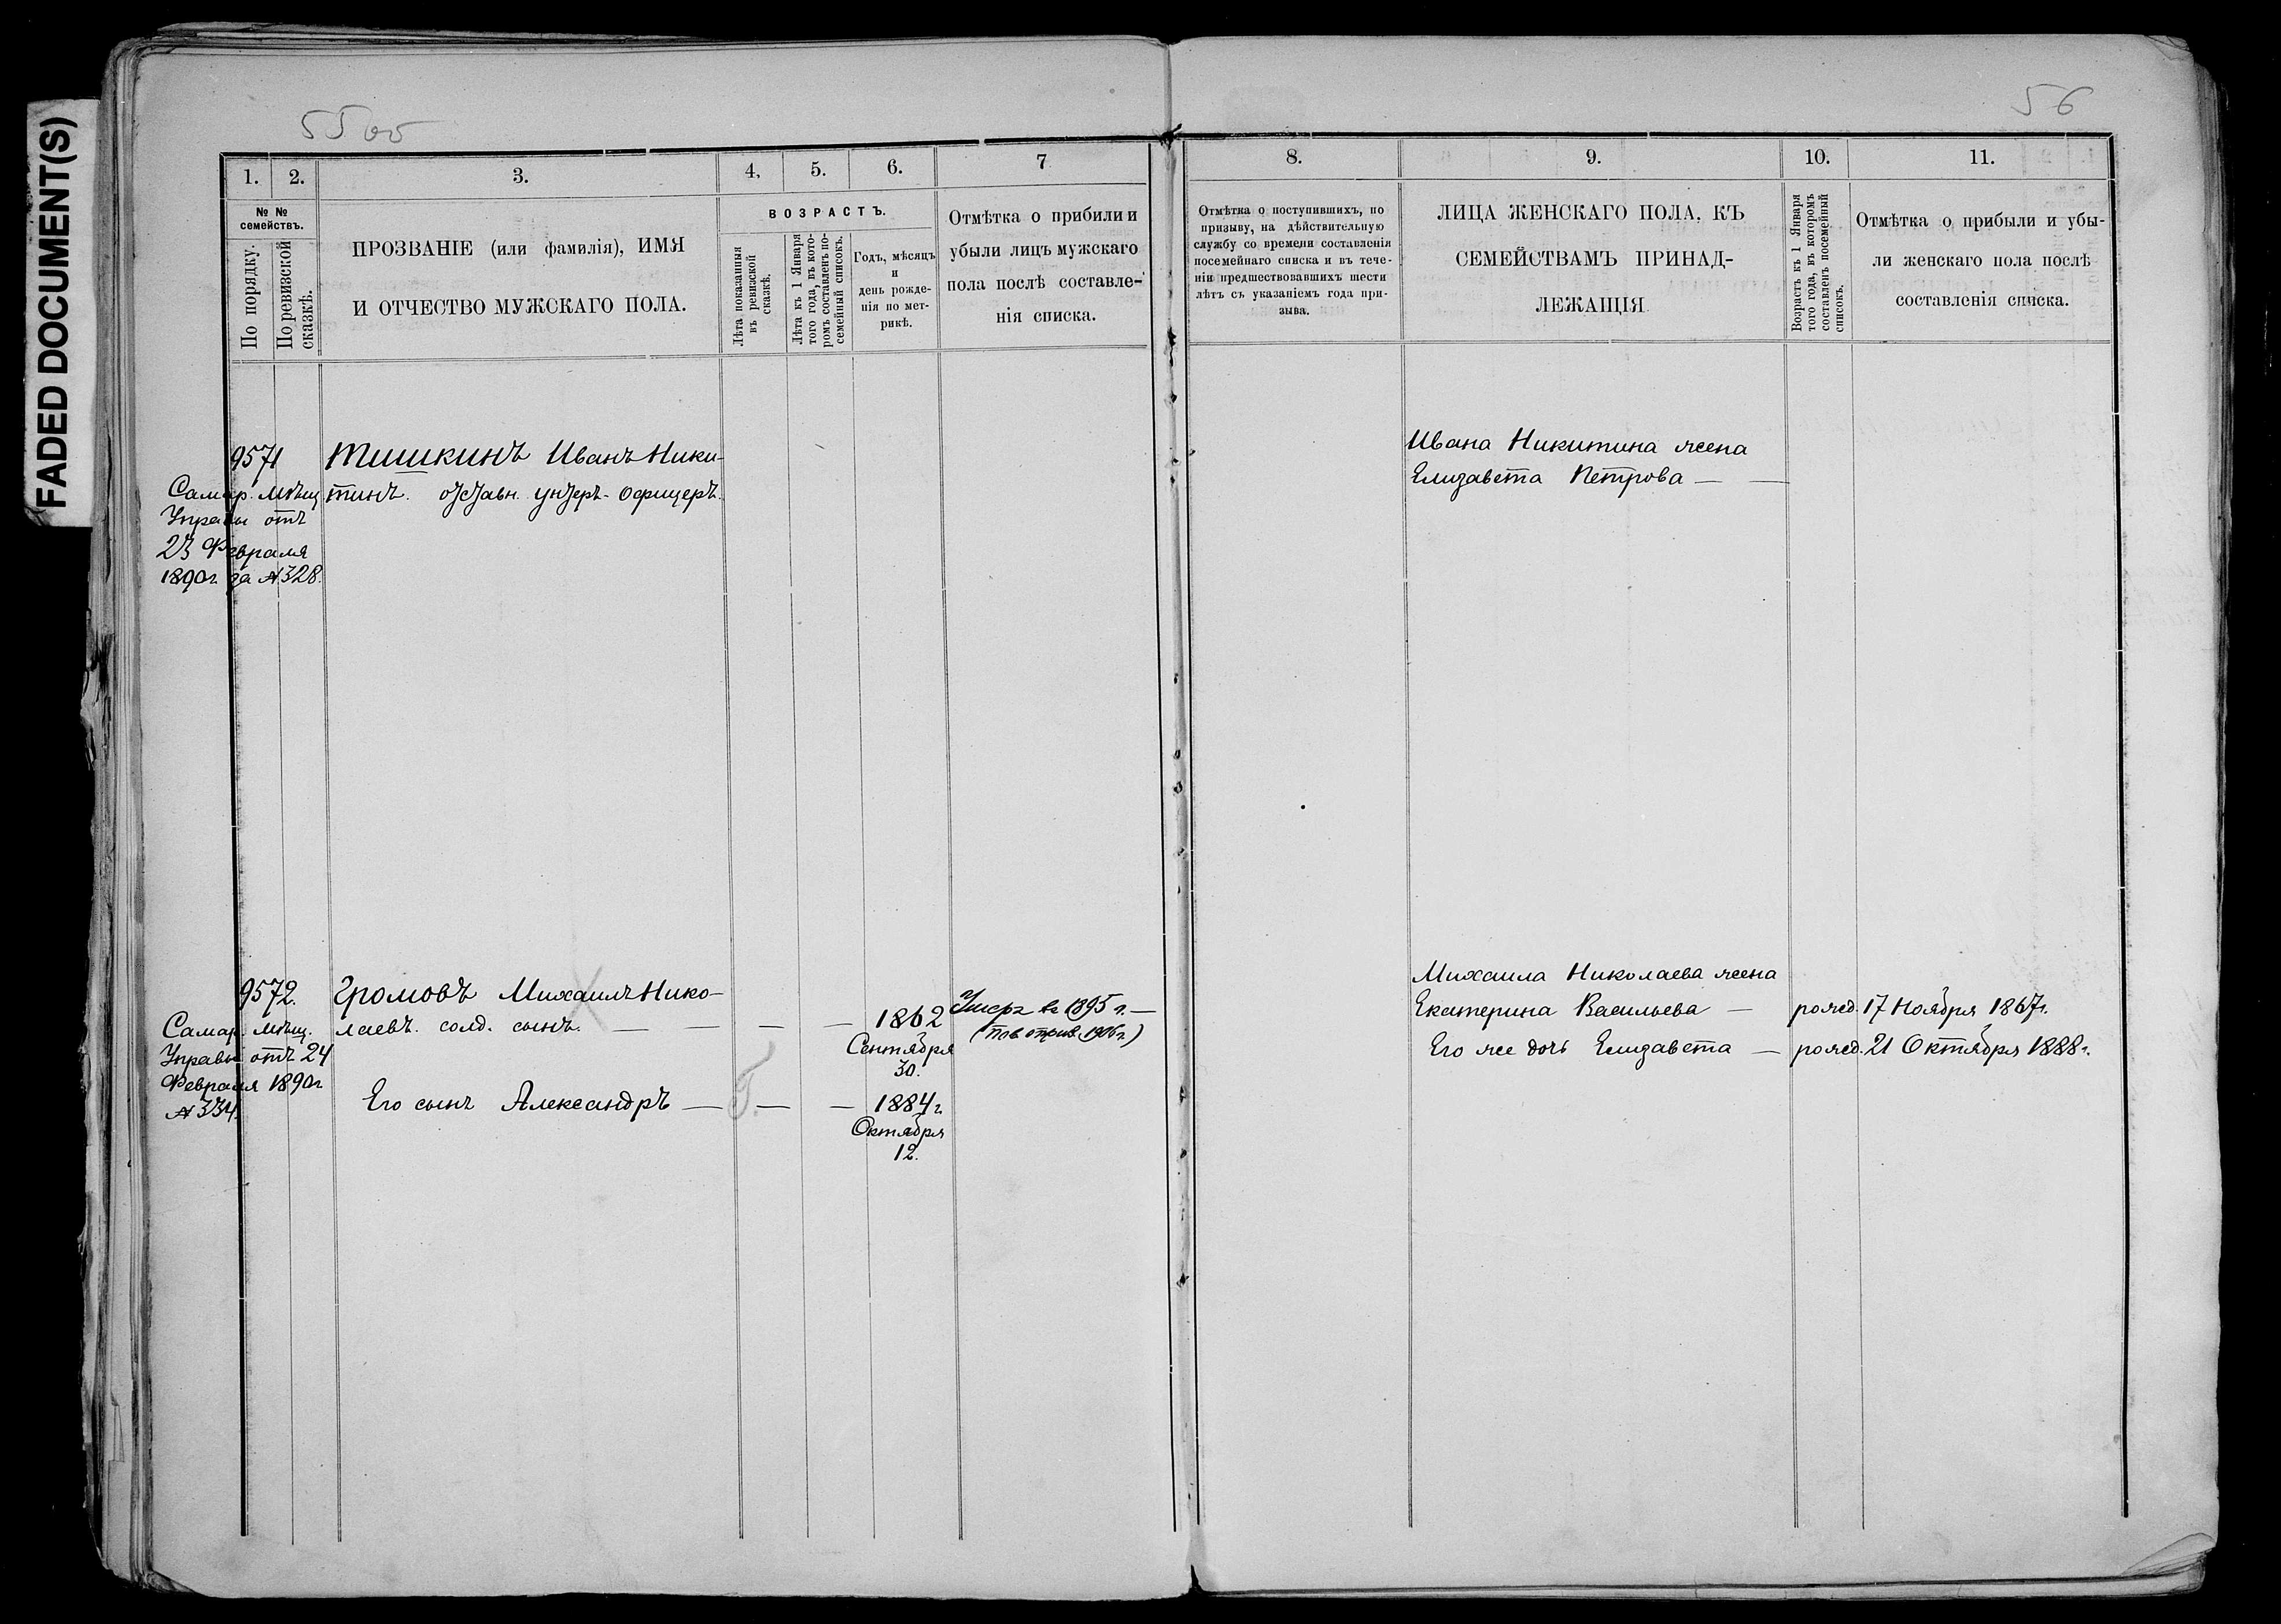 FADED DOCUMENT(S)
55 об
56
1.
2.
3.
4.
5.
6.
7
8.
9.
10.
11.
№ №
семействъ.
По порядку.
По ревизской
сказкѣ.
ПРОЗВАНІЕ (или фамилія), ИМЯ
И ОТЧЕСТВО МУЖСКАГО ПОЛА.
ВОЗРАСТЪ.
Лѣта показанныя
въ ревизской
сказкѣ.
Лѣта къ 1 Января
того года, въ кото-
ромъ составленъ по-
семейный списокъ.
Годъ, мѣсяцъ
и
день рожде-
нія по мет-
рикѣ.
Отмѣтка о прибили и
убыли лицъ мужскаго
пола послѣ составле-
нія списка.
Отмѣтка о поступившихъ, по
призыву, на дѣйствительную
службу со времени составленія
посемейнаго списка и въ тече-
ніи предшествовавшихъ шести
лѣтъ съ указаніемъ года при-
зыва.
ЛИЦА ЖЕНСКАГО ПОЛА, КЪ
СЕМЕЙСТВАМЪ ПРИНАД-
ЛЕЖАЩІЯ
Возрастъ къ 1 Января
того года, въ которомъ
составленъ посемейный
списокъ.
Отмѣтка о прибыли и убы-
ли женскаго пола послѣ
составленія списка.
9571
Самар. Мѣщ
Управы отъ
23 Февраля
1890г. за №328.
Тишкинъ Иванъ Ники-
тинъ. отставн. унтеръ-офицеръ.
Ивана Никитина жена
Елизавета Петрова —
9572.
Самар. Мѣщ.
Управы отъ 24
Февраля 1890г
№334.
Громовъ Михаилъ Нико-
лаевъ. солд. сынъ. — — — —
1862
Сентября
30.
Умеръ въ 1895 г. —
1906г.)
Его сынъ Александръ — — —
1884г.
Октября
12.
Михаила Николаева жена
Екатерина Васильева — рожд. 17 Ноября 1867г.
Его же дочь Елизавета — рожд. 21 Октября 1888г.